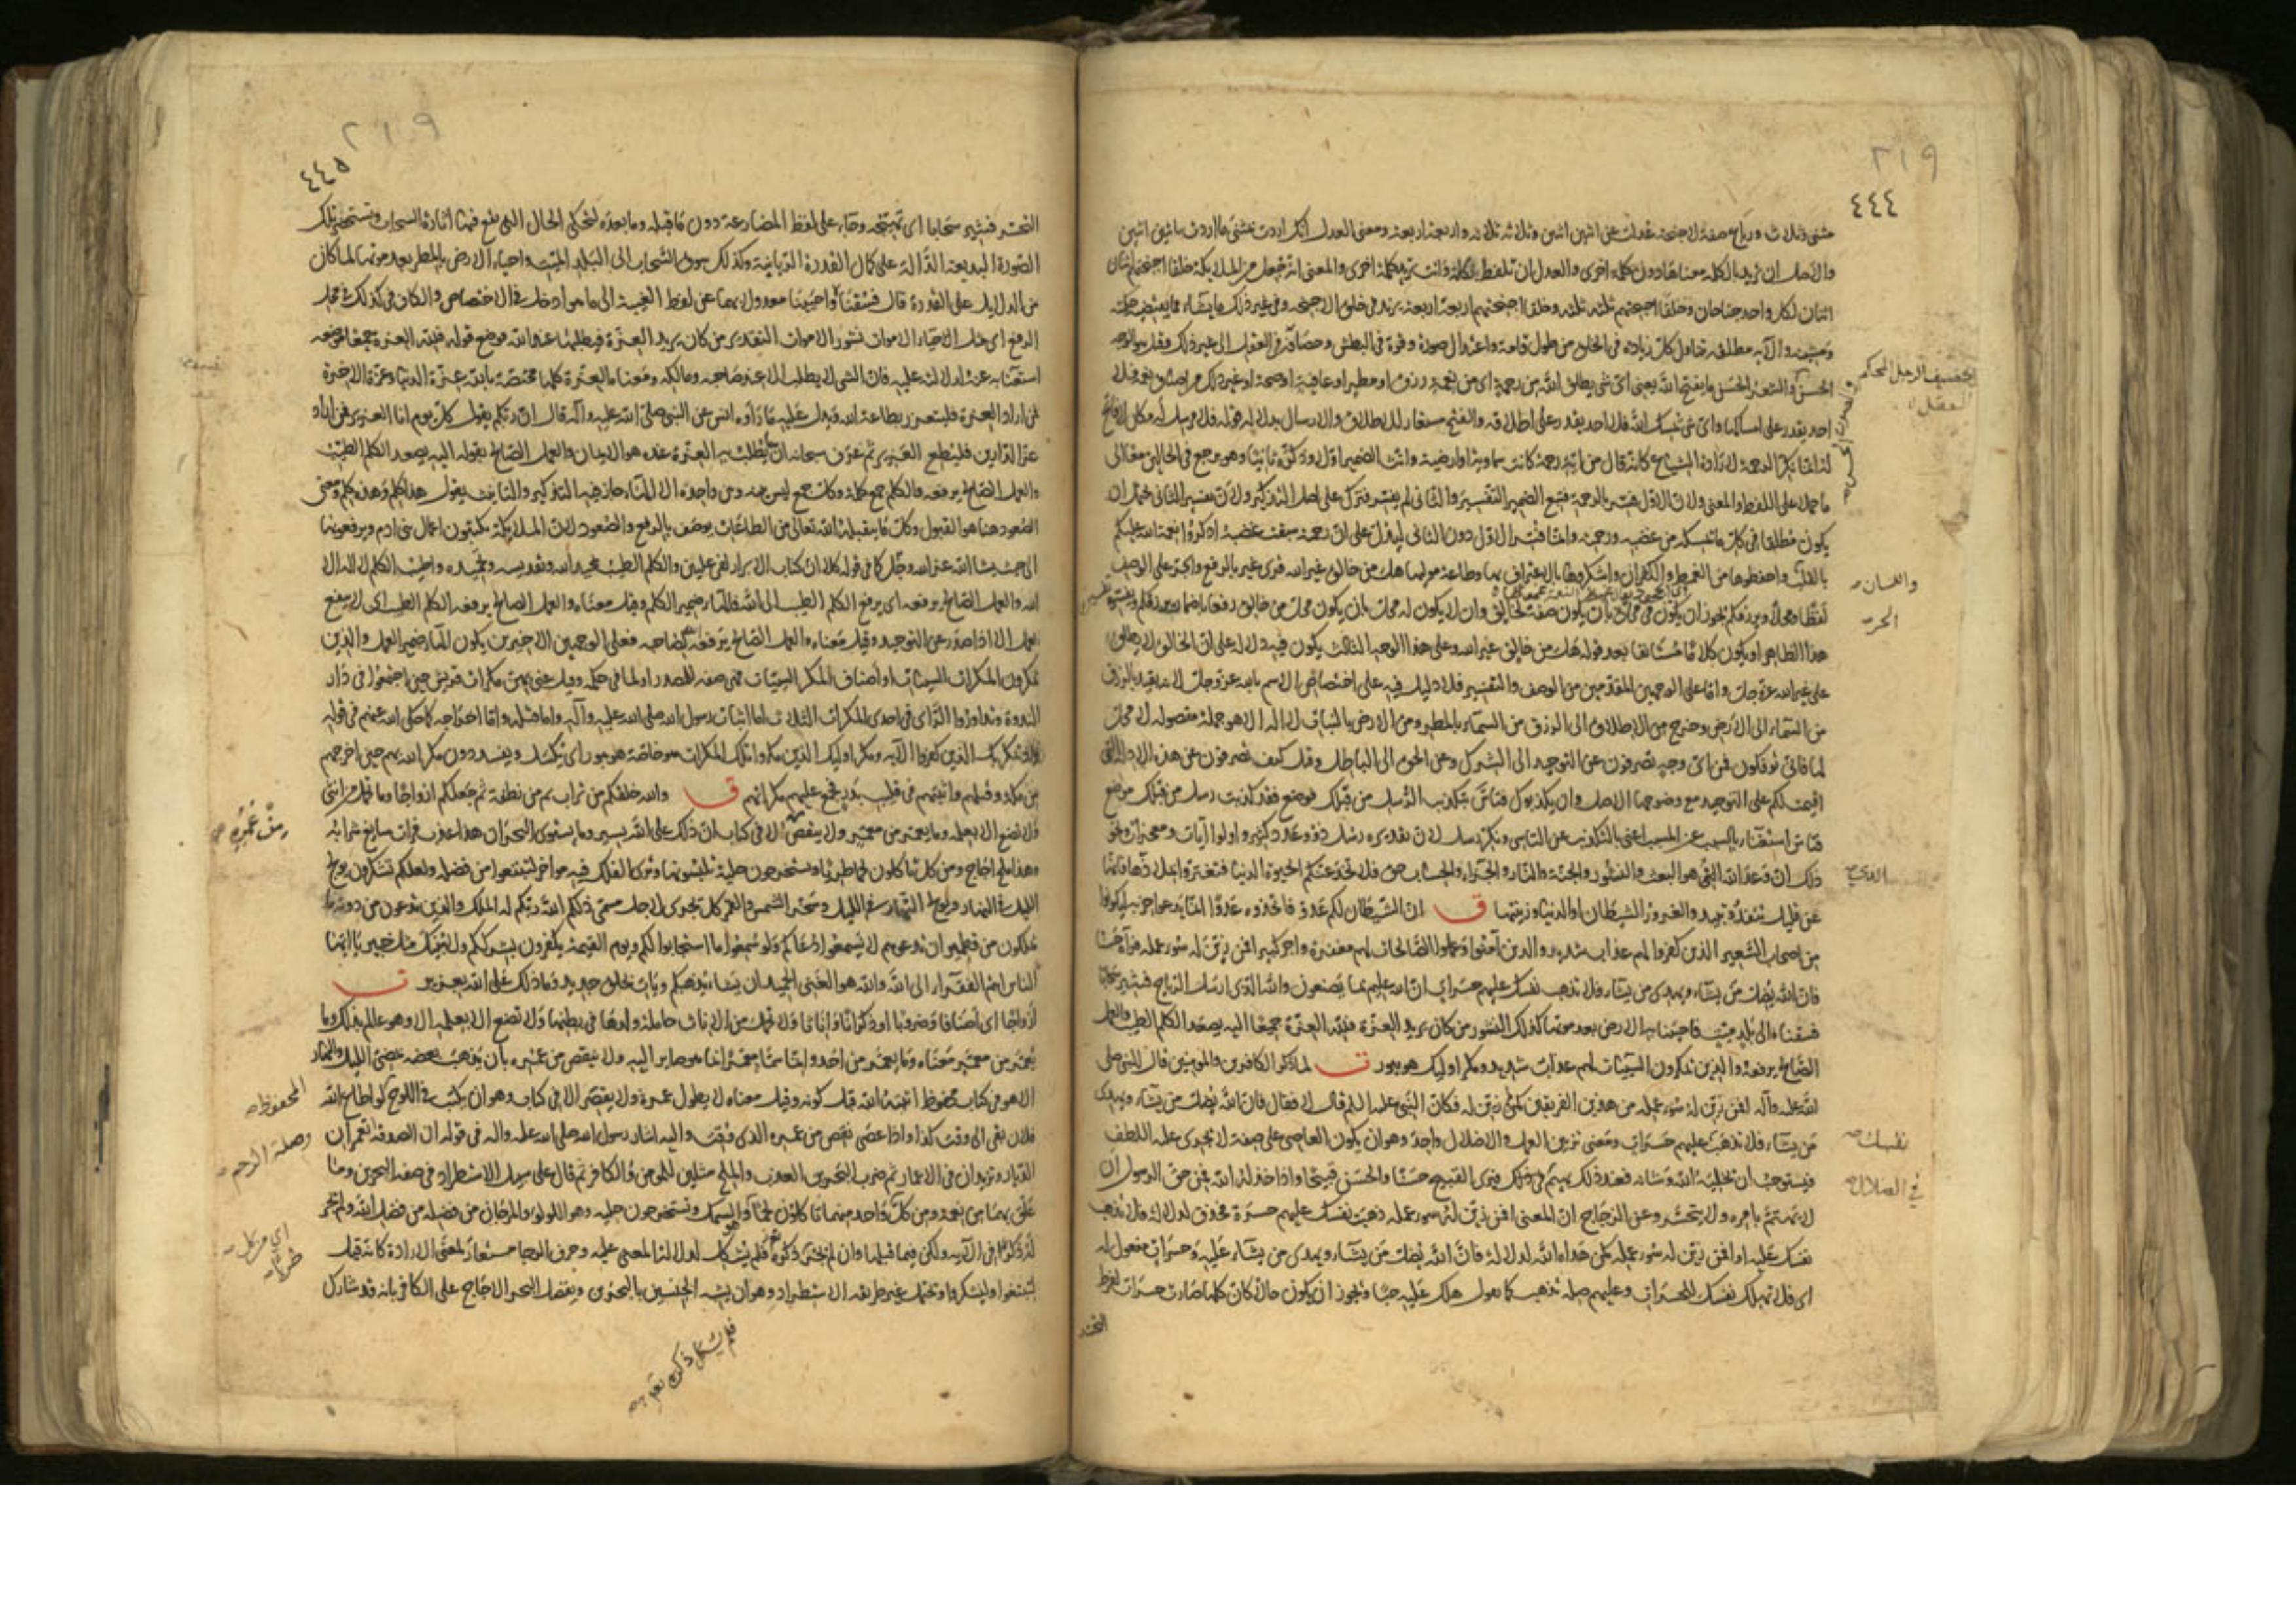 ٢١٩
٤٤٤
مثنى وثلاث ورباع صفة لاجنحة عدلت عن اثنين اثنين وثلاثة ثلاثة واربعة اربعة ومعنى العدل انك اردت بمثنى ما اردت باثنين اثنين
والاصل ان تريد بالكلمة معناها دون كلمة اخرى والعدل ان تلفظ بكلمة وانت تريد كلمة اخرى والمعنى انه جعل من الملايكة خلقا اجنحتهم اثنان
اثنان لكل واحد جناحان وخلقا اجنحتهم ثلثة ثلثة وخلقا اجنحتهم اربعة اربعة يزيد في خلق الاجنحة وفي غير ذلك ما يشاء مما يقتضيه حكمته
ومشيته والآية مطلقة تتناول كل زيادة في الخلق من طول قامة واعتدال صورة وقوة في البطش وحصافة في العقل الى غير ذلك وقيل هو الوجه
الحسن والشعر الحسن ما يفتح الله يعني اي شئ يطلق الله من رحمة اي من نعمة ورزق او مطر او عافية او صحة او غير ذلك من اصناف نعمه فلا
احد يقدر على امساكها واي شئ يمسك الله فلا احد يقدر على اطلاقه والفتح مستعار للاطلاق والارسال بدلالة قوله فلا مرسل له مكان لا فاتح
له وانما نكر الرحمة لارادة الشياع كانه قال من اية رحمة كانت سماوية او ارضية وانث الضمير اولا وذكره ثانيا وهو يرجع في الحالين معا الى
ما حملا على اللفظ والمعنى ولان الاول فسر بالرحمة فتبع الضمير التفسير والثاني لم يفسر فترك على اصل التذكير ولان تفسير الثاني يحتمل ان
يكون مطلقا في كل ما يمسكه من غضبه ورحمته وانما فسر الاول دون الثاني ليدل على ان رحمته سبقت غضبه اذكروا نعمة الله عليكم
بالقلب واحفظوها من الغمط والكفران واشكروها بالاعتراف بها وطاعة موليها هل من خالق غير الله قرئ غير بالرفع والجر على الوصف
لفظا ومحلا ويرزقكم يجوز ان يكون في محل بان يكون صفة لخالق وان لا يكون له محل بان يكون محل من خالق رفعا باضمار يرزقكم
هذا الظاهر او يكون كلاما مستانفا بعد قوله هل من خالق غير الله وعلى هذا الوجه الثالث يكون فيه دلالة على ان الخالق لا يطلق
على غير الله عز وجل واما على الوجهين المقدمين من الوصف والتفسير فلا دليل فيه على اختصاص الاسم بالله عز وجل لانه يقيد بالرزق
من السماء الى الارض وخرج من الاطلاق الى الرزق من السماء بالمطر ومن الارض بالنبات لا اله الا هو جملة مفصولة لا محل
لها فانى تؤفكون فمن اي وجه تصرفون عن التوحيد الى الشرك وعن الحق الى الباطل وقيل كيف تصرفون عن هذه الادلة التي
اقيمت لكم على التوحيد مع وضوحها الاصل وان يكذبوك فتاس بتكذيب الرسل من قبلك فوضع فقد كذبت رسل من قبلك موضع
فتاس استغناء بالسبب عن المسبب اعني بالتكذيب عن التاسي ونكر رسل لان تقديره رسل ذوو عدد كثير واولوا آيات ومعجزات ونحو
ذلك ان وعد الله الحق هو البعث والنشور والجنة والنار والجزاء والحساب حق فلا تخدعنكم الحيوة الدنيا فتغتروا بملاذها فانها
عن قليل تنفد وتبيد والغرور الشيطان او الدنيا وزينتها ق ان الشيطان لكم عدو فاتخذوه عدوا انما يدعوا حزبه ليكونوا
من اصحاب السعير الذين كفروا لهم عذاب شديد والذين آمنوا وعملوا الصالحات لهم مغفرة واجر كبير افمن زين له سوء عمله فرآه حسنا
فان الله يضل من يشاء ويهدي من يشاء فلا تذهب نفسك عليهم حسرات ان الله عليم بما يصنعون والله الذي ارسل الرياح فتثير سحابا
فسقناه الى بلد ميت فاحيينا به الارض بعد موتها كذلك النشور من كان يريد العزة فلله العزة جميعا اليه يصعد الكلم الطيب والعمل
الصالح يرفعه والذين يمكرون السيئات لهم عذاب شديد ومكر اوليك هو يبور ت لما ذكر الكافرين والمومنين قال لنبيه صلى
الله عليه وآله افمن زين له سوء عمله من هذين الفريقين كمن لم يزين له فكان النبي عليه السلم قال لا فقال فان الله يضل من يشاء ويهدي
من يشاء فلا تذهب عليهم حسرات ومعنى تزيين العمل والاضلال واحد وهو ان يكون العاصي على صفة لا يجدي عليه اللطف
فيستوجب ان تخلية الله وشانه فعند ذلك يهيم في ذلك فيرى القبيح حسنا والحسن قبيحا واذا خذله الله فمن حق الرسول ان
لا يهتم بامره ولا يتحسر وعن الزجاج ان المعنى افمن زين له سوء عمله ذهبت نفسك عليهم حسرة فحذف لدلالة فلا تذهب
نفسك عليه او افمن زين له سوء عمله كمن هداه الله لدلالة فان الله يضل من يشاء ويهدي من يشاء عليه وحسرات مفعول له
اي فلا تهلك نفسك للحسرات وعليهم صلة تذهب كما تقول هلك عليه حبا ويجوز ان يكون حالا كان كلها صارت حسرات لفرط
التحسر
تخفيف الرجل المحكم
العقل
واللسان
الجر
الذي
نفسك
في الضلال
٢١٩
٤٤٥
التحسر فتثير سحابا اي تهيجه وجاء على لفظ المضارعة دون ما قبله وما بعده لتحكي الحال التي تقع فيها اثارة السحاب وتستحضر تلك
الصورة البديعة الدالة على كمال القدرة الربانية وكذلك سوق السحاب الى البلد الميت واحياء الارض بالمطر بعد موتها لما كان
من الدلايل على القدرة قال فسقنا واحيينا معدولا بهما عن لفظ الغيبة الى ما هو ادخل في الاختصاص والكاف في كذلك في محل
الرفع اي مثل الاحياء الاموات نشور الاموات التقدير من كان يريد العزة فليطلبها عند الله فوضع قوله فلله العزة جميعا موضعه
استغناء به عنه لدلالته عليه فان الشئ لا يطلب الا عند صاحبه ومالكه ومعناه العزة كلها مختصة بالله عزة الدنيا وعزة الاخرة
فمن اراد العزة فليتعزز بطاعة الله ويدل عليه ما رواه انس عن النبي صلى الله عليه وآله قال ان ربكم يقول كل يوم انا العزيز فمن اراد
عز الدارين فليطع العزيز ثم عرف سبحانه ان ما يطلب به العزة عنده هو الايمان والعمل الصالح بقوله اليه يصعد الكلم الطيب
والعمل الصالح يرفعه والكلم جمع كلمة وكل جمع ليس بينه وبين واحده الا الهاء جاز فيه التذكير والتانيث يقول هذا كلم وهذه كلم ومعنى
الصعود ههنا هو القبول وكل ما يتقبله الله تعالى من الطاعات يوصف بالرفع والصعود لان الملايكة يكتبون اعمال بني ادم ويرفعونها
الى حيث شاء الله عز وجل كما في قوله كلا ان كتاب الابرار لفي عليين والكلم الطيب تمجيد الله وتقديسه وتحميده واطيب الكلم لا اله الا
الله والعمل الصالح يرفعه اي يرفع الكلم الطيب الى الله فالهاء ضمير الكلم وقيل معناه والعمل الصالح يرفعه الكلم الطيب اي لا ينفع
العمل الا اذا صدر عن التوحيد وقيل معناه والعمل الصالح يرفعه لصاحبه فعلى الوجهين الاخيرين يكون الهاء ضمير العمل والذين
يمكرون المكرات السيئات او اصناف المكر السيئات فهي صفة للمصدر او لما في حكمه وقيل عنى بهن مكرات قريش حين اجتمعوا في دار
الندوة وتداوروا الراي في احدى المكرات الثلاث اما اثبات رسول الله صلى الله عليه وآله واما قتله واما اخراجه كما حكى الله عنهم في قوله
واذ يمكر بك الذين كفروا الآية ومكر اوليك الذين مكروا تلك المكرات هو خاصة هو يبور اي يكسد ويفسد دون مكر الله بهم حين اخرجهم
من مكة وقتلهم واثبتهم في قليب بدر فجمع عليهم مكراتهم ق والله خلقكم من تراب ثم من نطفة ثم جعلكم ازواجا وما تحمل من انثى
ولا تضع الا بعلمه وما يعمر من معمر ولا ينقص الا في كتاب ان ذلك على الله يسير وما يستوي البحران هذا عذب فرات سايغ شرابه
وهذا ملح اجاج ومن كل تاكلون لحما طريا وتستخرجون حلية تلبسونها وترى الفلك فيه مواخر لتبتغوا من فضله ولعلكم تشكرون يولج
الليل في النهار ويولج النهار في الليل وسخر الشمس والقمر كل يجري لاجل مسمى ذلكم الله ربكم له الملك والذين تدعون من دونه ما
يملكون من قطمير ان تدعوهم لا يسمعوا دعاءكم ولو سمعوا ما استجابوا لكم ويوم القيمة يكفرون بشرككم ولا ينبئك مثل خبير يا ايها
الناس انتم الفقراء الى الله والله هو الغني الحميد ان يشاء يذهبكم ويات بخلق جديد وما ذلك على الله بعزيز ت
ازواجا اي اصنافا وضروبا او ذكرانا واناثا ولا تحمل من الاناث حاملة ولدها في بطنها ولا تضع الا بعلمه الا وهو عالم بذلك وما
يعمر من معمر معناه وما يعمر من احد وانما سماه معمرا بما هو صاير اليه ولا ينقص من عمره بان يذهب بعضه بمضي الليل والنهار
الا وهو في كتاب محفوظ اثبته الله قبل كونه وقيل معناه لا يطول عمره ولا يقصر الا في كتاب وهو ان يكتب في اللوح لو اطاع الله
فلان بقي الى وقت كذا واذا عصى نقص من عمره الذي وقت واليه اشار رسول الله صلى الله عليه واله في قوله ان الصدقة تعمران
الديار وتزيدان في الاعمار ثم ضرب البحرين العذب والملح مثلين للمومن والكافر ثم قال على سبيل الاستطراد في صفة البحرين وما
علق بهما من نعمه ومن كل واحد منهما تاكلون لحما وهو السمك وتستخرجون حلية وهو اللولو والمرجان من فضله من فضل الله ولم يجر
له ذكر في الآية ولكن فيما قبلها وان لم يجئ ذكره فلم يشكل لدلالة المعنى عليه وحرف الرجاء مستعار لمعنى الارادة كانه قيل
لتبتغوا ولتشكروا ويحتمل غير طريقة الاستطراد وهو ان يشبه الجنسين بالبحرين ويفضل البحر الاجاج على الكافر بانه قد شارك
من عمره
المحفوظ
وصلة الرحم
اي من كل